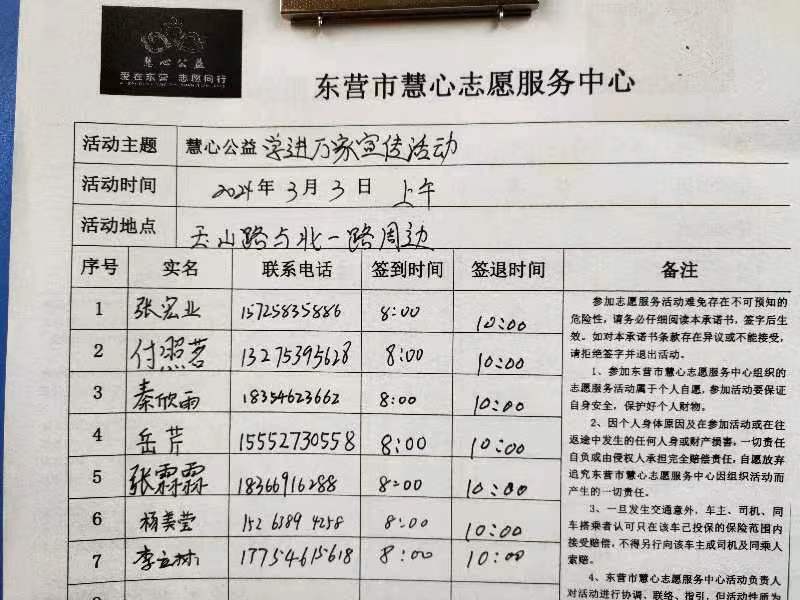 慧心公益
爱在东营 志愿同行
东营市慧心志愿服务中心
活动主题 慧心公益 学进万家宣传活动
活动时间 2024年3月3日 上午
活动地点 天山路与北一路周边
序号 实名 联系电话 签到时间 签退时间 备注
1 张宏业 15725835886 8:00 10:00
2 付照茗 13275395628 8:00 10:00
3 秦欣雨 18354623662 8:00 10:00
4 岳芹 15552730558 8:00 10:00
5 张霖霖 18366916288 8:00 10:00
6 杨美莹 152 6389 4258 8:00 10:00
7 李立林 17754615618 8:00 10:00
参加志愿服务活动难免存在不可预知的
危险性，请务必仔细阅读本承诺书，签字后生
效。如对本承诺书条款存在异议或不能接受，
请拒绝签字并退出活动。
1、参加东营市慧心志愿服务中心组织的
志愿服务活动属于个人自愿，参加活动要保证
自身安全，保护好个人财物。
2、因个人身体原因及在参加活动或在往
返途中发生的任何人身或财产损害，一切责任
自负或由侵权人承担完全赔偿责任，自愿放弃
追究东营市慧心志愿服务中心因组织活动而
产生的一切责任。
3、一旦发生交通意外，车主、司机、同
车搭乘者认可只在该车已投保的保险范围内
接受赔偿，不得另行向该车主或司机及同乘人
索赔。
4、东营市慧心志愿服务中心活动负责人
对活动进行协调、联络、指引，但活动性质为